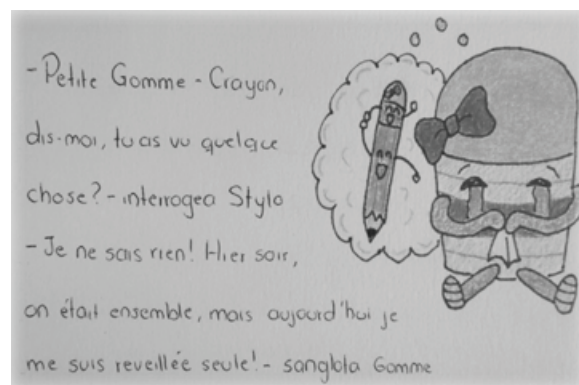 -Petite Gomme - Crayon,
dis-moi, tu as vu quelque
chose? - interrogea Stylo
-Je ne sais rien! Hier soir,
on était ensemble, mais aujourd'hui je
me suis reveillée seule! - sanglota Gomme